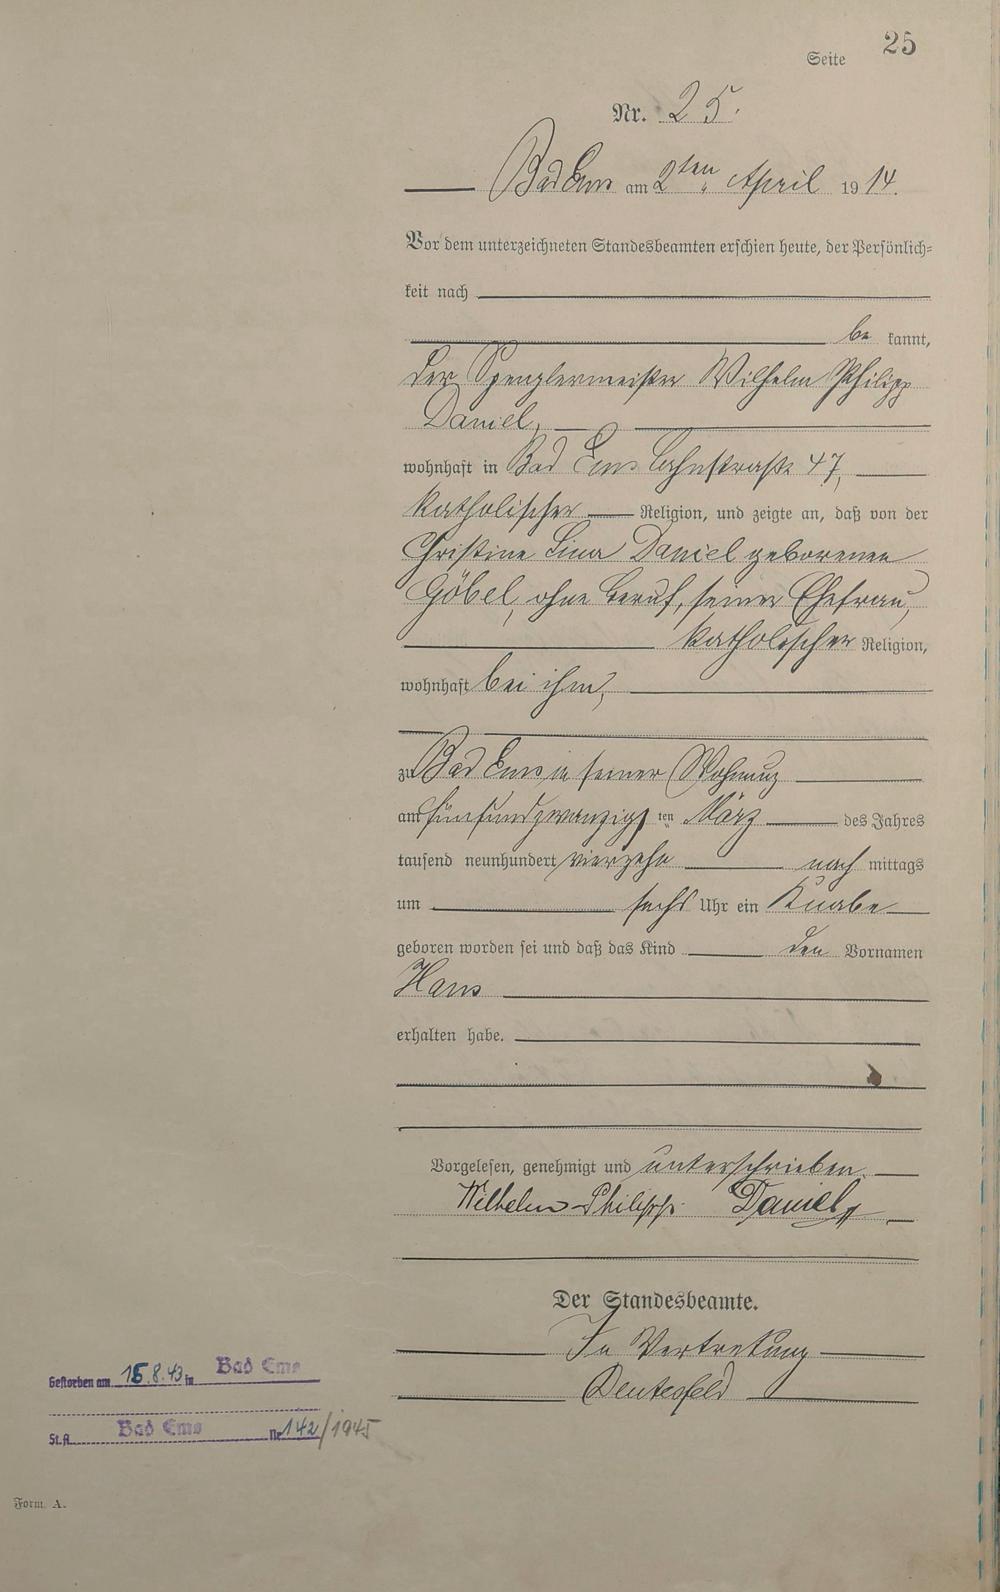 Seite 25
Nr. 25.
Bad Ems am 2ten April 1914.
Vor dem unterzeichneten Standesbeamten erschien heute, der Persönlich-
keit nach
be kannt,
der Spenglermeister Wilhelm Philipp
Daniel,
wohnhaft in Bad Ems Lahnstraße 47,
katholischer Religion, und zeigte an, daß von der
Christine Lina Daniel geborenen
Göbel, ohne Beruf, seiner Ehefrau,
katholischer Religion,
wohnhaft bei ihm,
zu Bad Ems in seiner Wohnung
am fünfundzwanzigsten März des Jahres
tausend neunhundert vierzehn nach mittags
um sechs Uhr ein Knabe
geboren worden sei und daß das Kind den Vornamen
Hans
erhalten habe.
Vorgelesen, genehmigt und unterschrieben.
Wilhelm Philipp Daniel
Der Standesbeamte.
In Vertretung
Gestorben am 8.43 in Bad Ems
St.A. Bad Ems Nr 142/1945
Form. A.